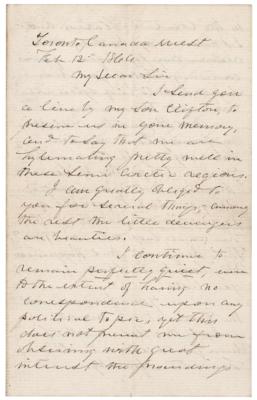 Toronto, Canada West
Feb 12th 1866
My Dear Sir
I send you
a line by my Son Clifton, to
us in your memory,
and to say that we are
pretty well in
these Semi Arctic regions.
I am greatly obliged to
you for several things, among
the rest the little
are beauties.
I continue to
remain perfectly quiet, even
to the extent of having no
correspondence upon any
political topic, yet this
does not prevent me from
observing with great
interest the proceedings